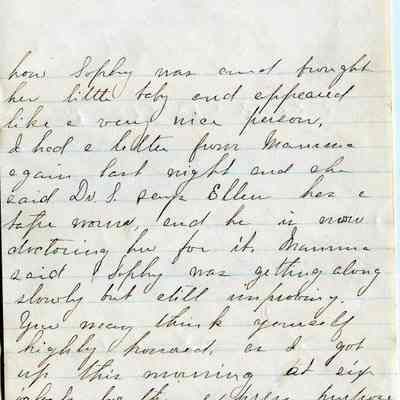 how Sophy was and brought
her little baby and appeared
like a very nice person.
I had a letter from Mamma
again last night and she
said Dr. S. says Ellen has a
tape worm, and he is now
doctoring her for it. Mamma
said Sophy was getting along
slowly but still improving.
You may think yourself
highly honored, as I got
up this morning at six
o'clock for the express purpose